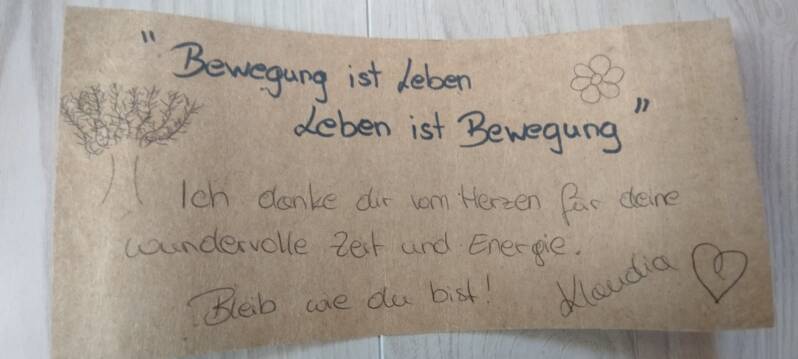 "Bewegung ist Leben
Leben ist Bewegung"
Ich danke dir vom Herzen für deine
wundervolle Zeit und Energie.
Bleib wie du bist!
Klaudia